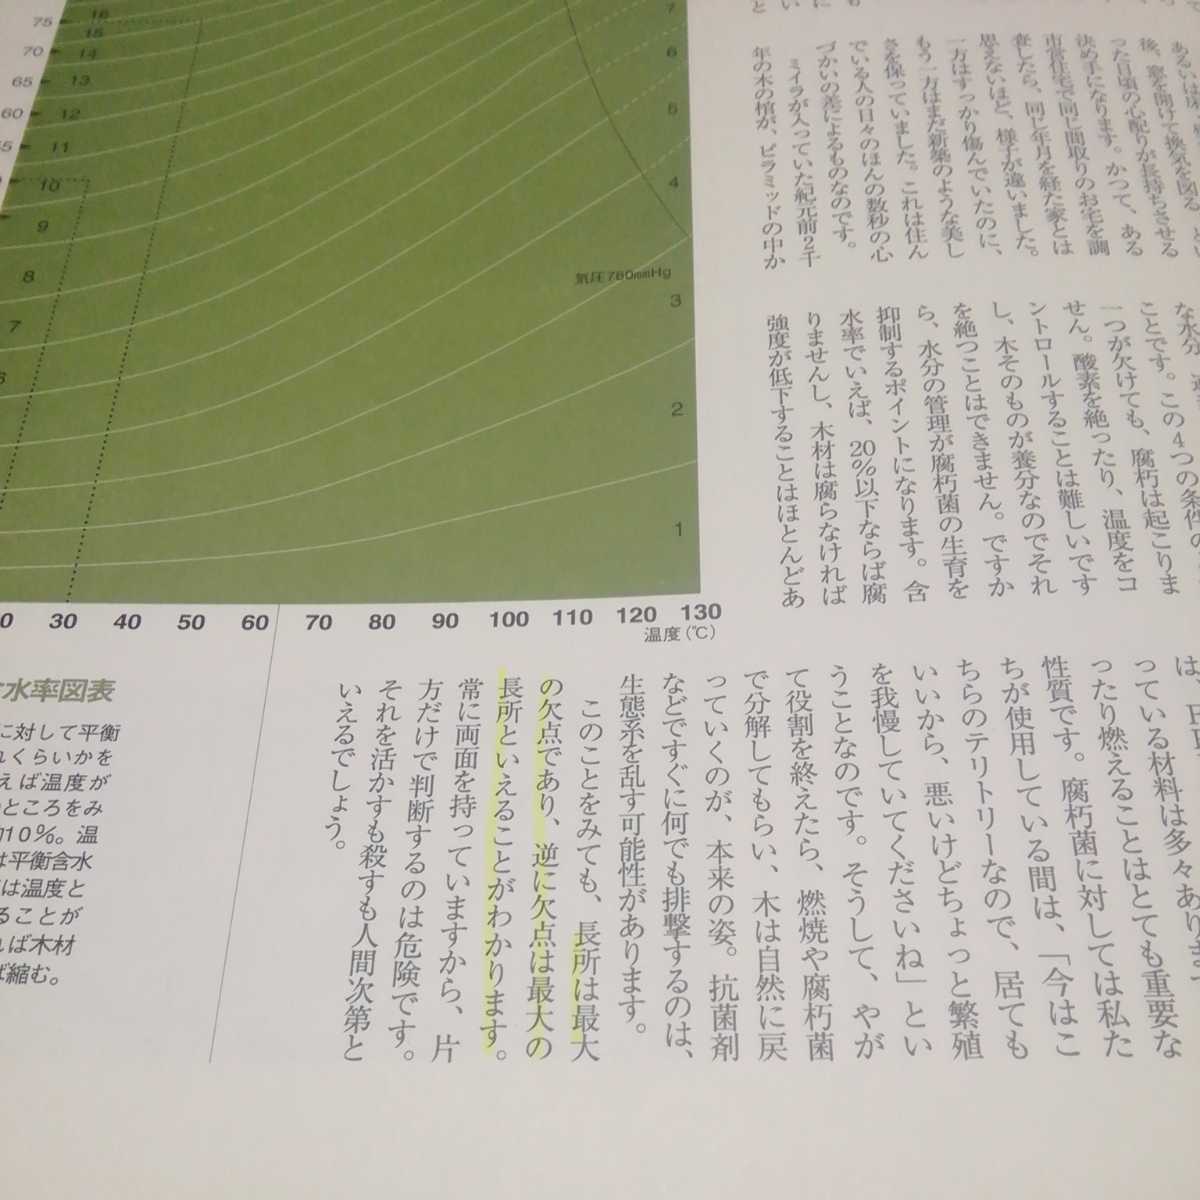 あるいは
後、窓を開けて換気を図る
った日頃の心配りが長持ちさせる
決め手になります。かつて、ある
市営住宅で同じ間取りのお宅を調
査したら、同じ年月を経た家とは
思えないほど、様子が違いました。
一方はすっかり傷んでいたのに、
もう一方はまだ新築のような美し
さを保っていました。これは住ん
でいる人の日々のほんの数秒の心
づかいの差によるものなのです。
ミイラが入っていた紀元前2千
年の木の棺が、ピラミッドの中か
な水分
ことです。この4つの条件の
一つが欠けても、腐朽は起こりま
せん。酸素を絶ったり、温度をコ
ントロールすることは難しいです
し、木そのものが養分なのでそれ
を絶つことはできません。ですか
ら、水分の管理が腐朽菌の生育を
抑制するポイントになります。含
水率でいえば、20%以下ならば腐
りませんし、木材は腐らなければ
強度が低下することはほとんどあ
っている材料は多々あります
ったり燃えることはとても重要な
性質です。腐朽菌に対しては私た
ちが使用している間は、「今はこ
ちらのテリトリーなので、居ても
いいから、悪いけどちょっと繁殖
を我慢していてくださいね」とい
うことなのです。そうして、やが
て役割を終えたら、燃焼や腐朽菌
で分解してもらい、木は自然に戻
っていくのが、本来の姿。抗菌剤
などですぐに何でも排撃するのは、
生態系を乱す可能性があります。
このことをみても、長所は最大
の欠点であり、逆に欠点は最大の
長所といえることがわかります。
常に両面を持っていますから、片
方だけで判断するのは危険です。
それを活かすも殺すも人間次第と
いえるでしょう。
75
70
65
60
16
15
14
13
12
11
10
9
8
7
7
6
5
4
気圧760mmHg
3
2
1
30 40 50 60 70 80 90 100 110 120 130
温度(℃)
水率図表
に対して平衡
れくらいかを
えば温度が
ところをみ
10%。温
は平衡含水
は温度と
ることが
れば木材
ば縮む。